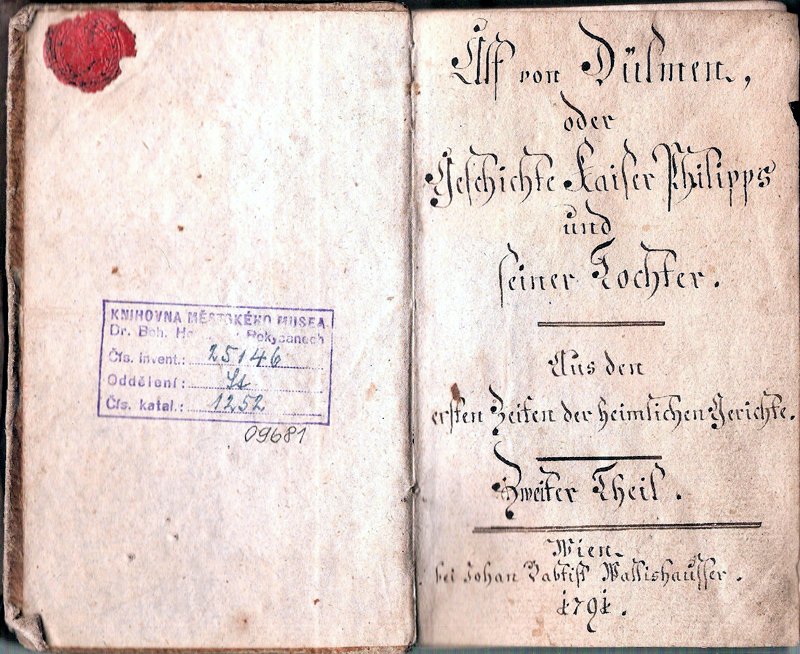 KNIHOVNA MĚSTSKÉHO MUSEA
Dr. Boh. Rokycanech
Čís. invent.: 25146
Oddělení: St
Čís. katal.: 1252
09681
Ulf von Dülmen,
oder
Geschichte Kaiser Philipps
und
seiner Tochter.
Aus den
ersten Zeiten der heimlichen Gerichte.
Zweiter Theil.
Wien.
bei Johan Babtist Wallishausser.
1791.